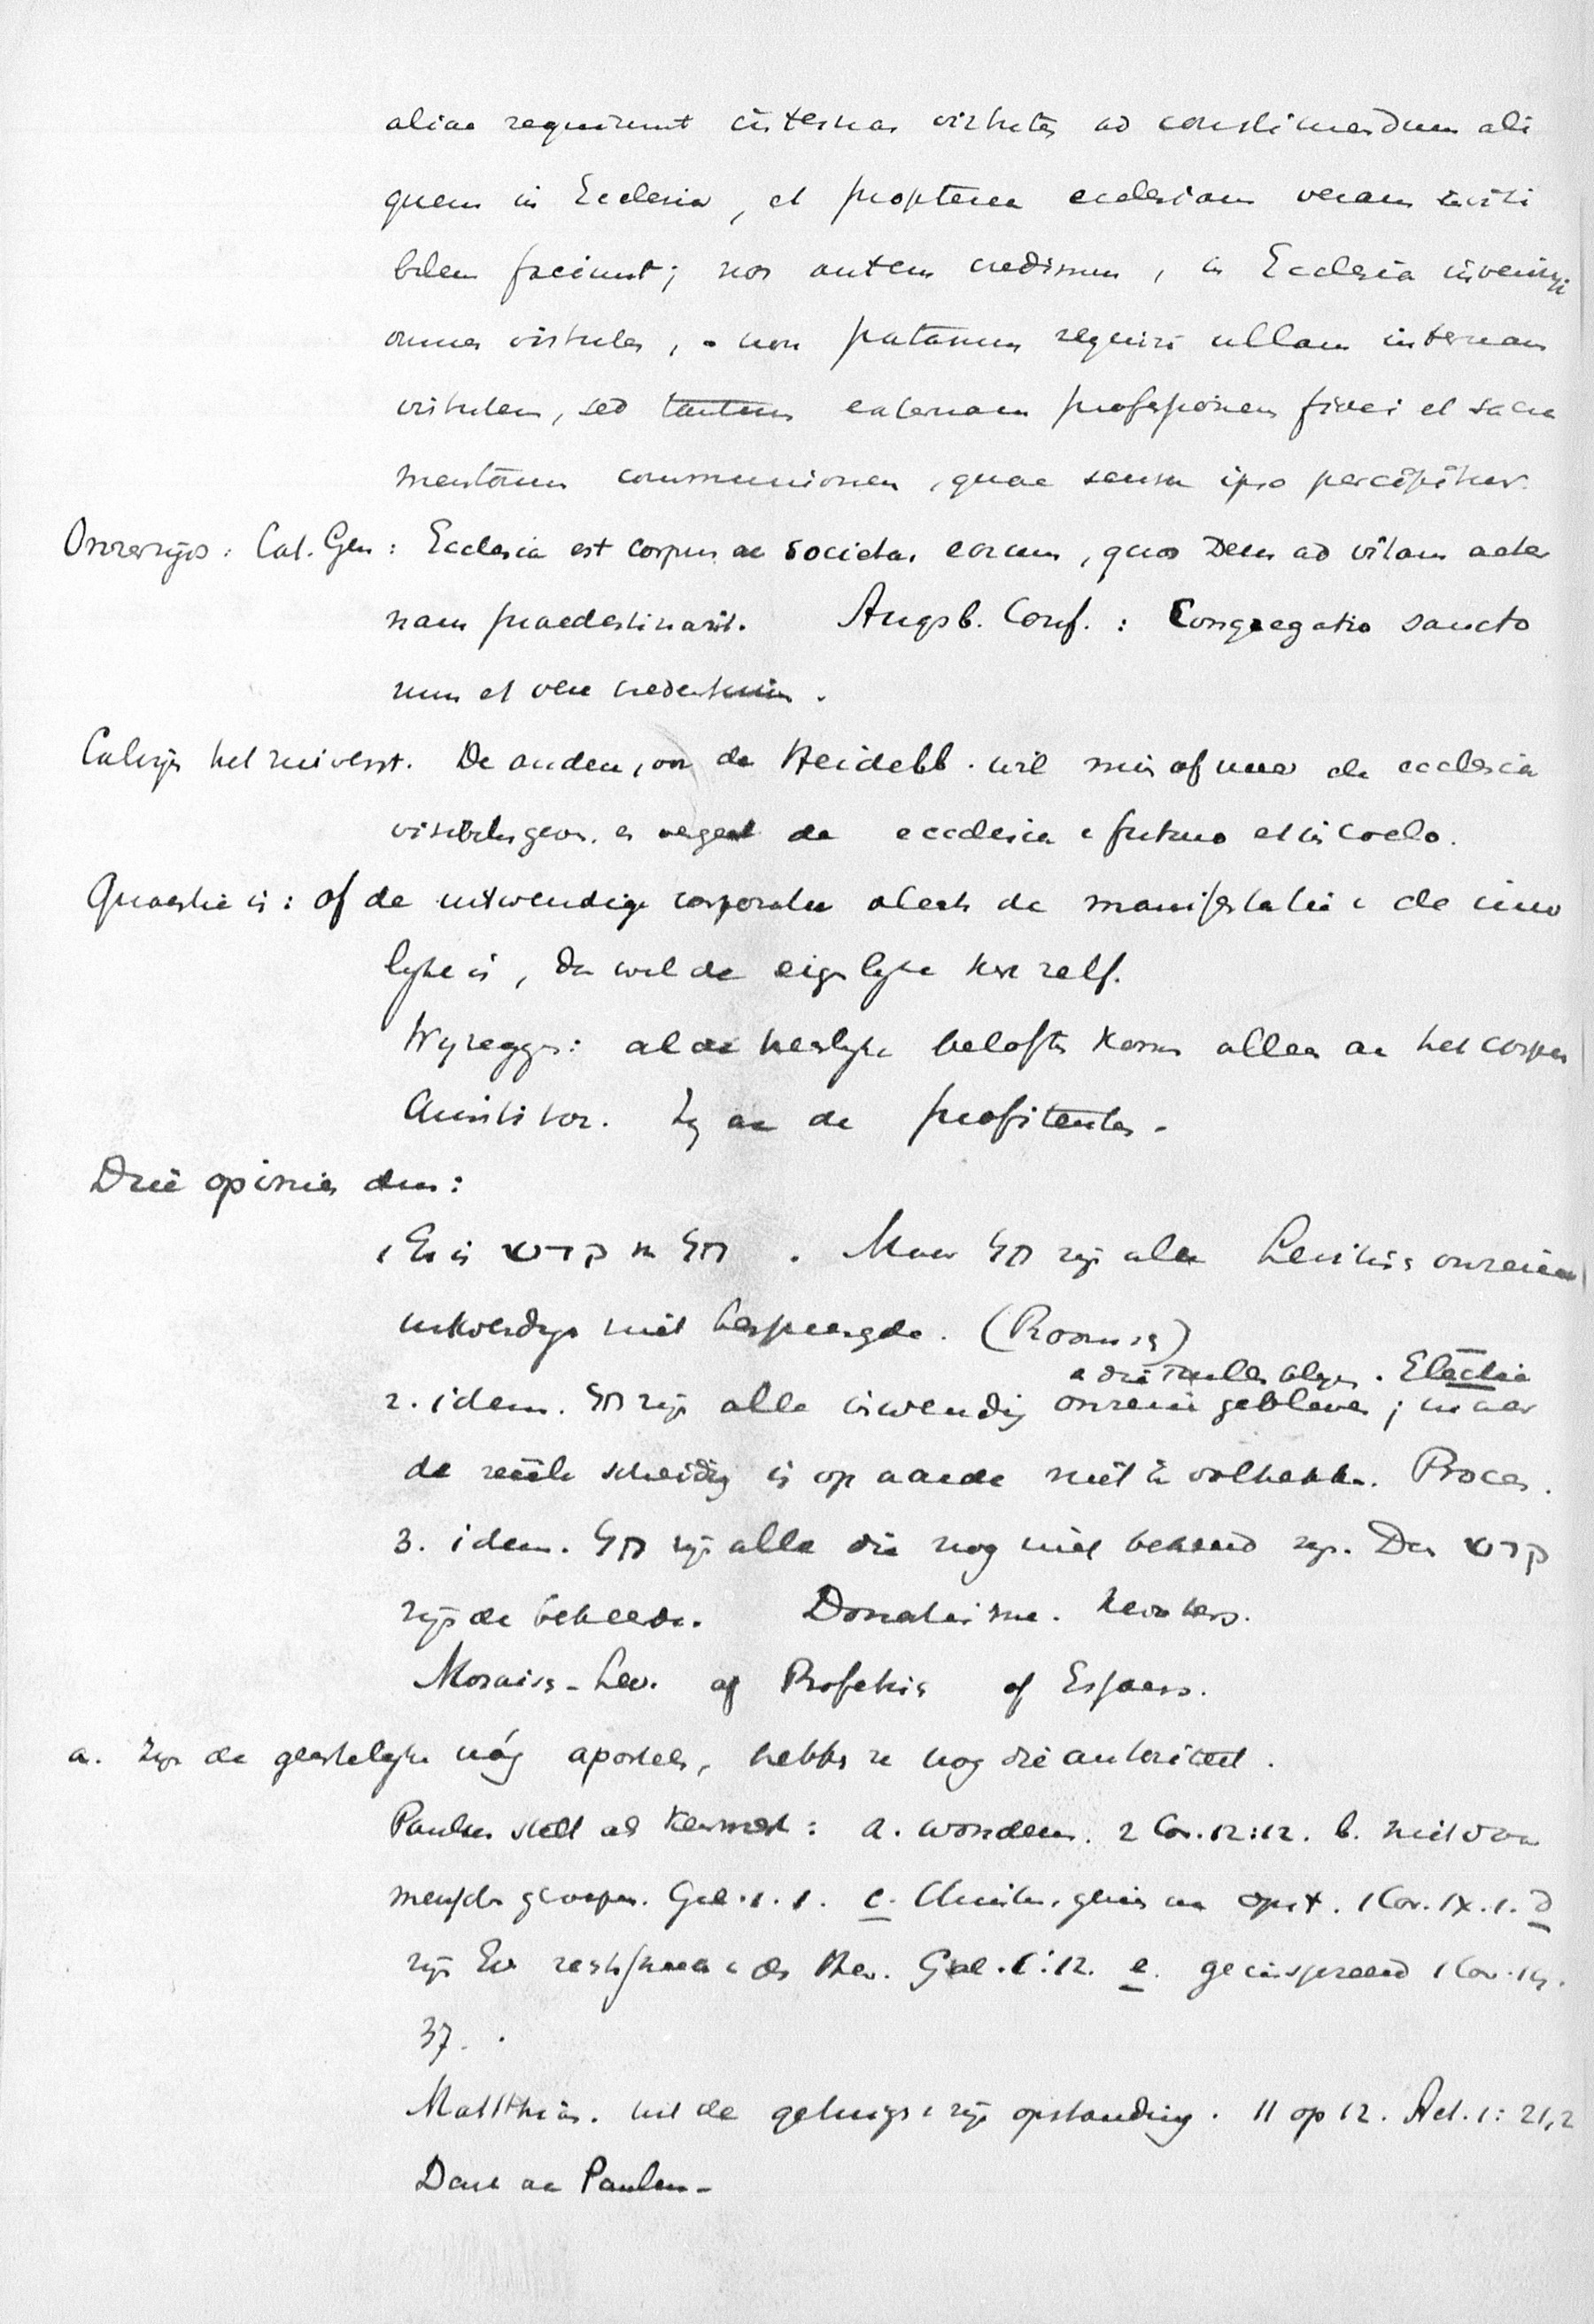 aliae requirunt internas virtutes ad constituendum ali
quem in Ecclesia, et propterea ecclesiam veram invisi
bilem faciunt; nos autem credimus, in Ecclesia inveniri
omnes virtutes, non putamus requiri ullam internam
virtutem, sed tantum externam professionem fidei et sacra
mentorum communionem, quae sensu ipso percipitur.
Onzerzijds: Cat. Gen: Ecclesia est corpus ac societas eorum, quos Deus ad vitam aeter
nam praedestinavit. Augsb. Conf.: Congregatio sancto
rum et vere credentium.
Calvijn het zuiverst. De ouden, de Heidelb. wil min of meer de ecclesia
visibilis en de ecclesia futuro et in coelo.
Quaestie is: of de uitwendige corporatie slechts de manifestatie de
lyke is, dan wel de eigelyke kerk zelf.
Wy zeggen: al de heerlyke beloften komen alleen aan het corpus
Christi toe. Zy aan de profitentes.
Drie opinies dus:
1 Er is קדש en חל. Maar חל zijn alle Levitisch onreinen
uitwendige niet besprengde. (Roomsch)
die zullen blijven. Electie
2. idem. חל zijn alle inwendig onrein gebleven; maar
de reëele scheiding is op aarde niet te voltrekken. Proces.
3. idem. חל zijn alle die nog niet bekeerd zijn. Den קדש
zijn de bekeerde. Donatisme.
Mosaisch-Lev. of Profetisch of Esseers.
a. Zijn de geestelyke nóg apostelen, hebben ze nog die autoriteit.
Paulus stelt als kenmerk: a. wonderen. 2 Cor. 12:12. b. niet door
menschen geroepen. Gal. 1. 1. c. Christus gezien na opst. 1 Cor. IX. 1. d
zijn Ev rechtstreeks Gal. 1:12. e. geinspireerd 1 Cor. 14.
37.
Matthias. uit de getuigen zijn opstanding. 11 op 12. Act. 1: 21,2
Dank aan Paulus-